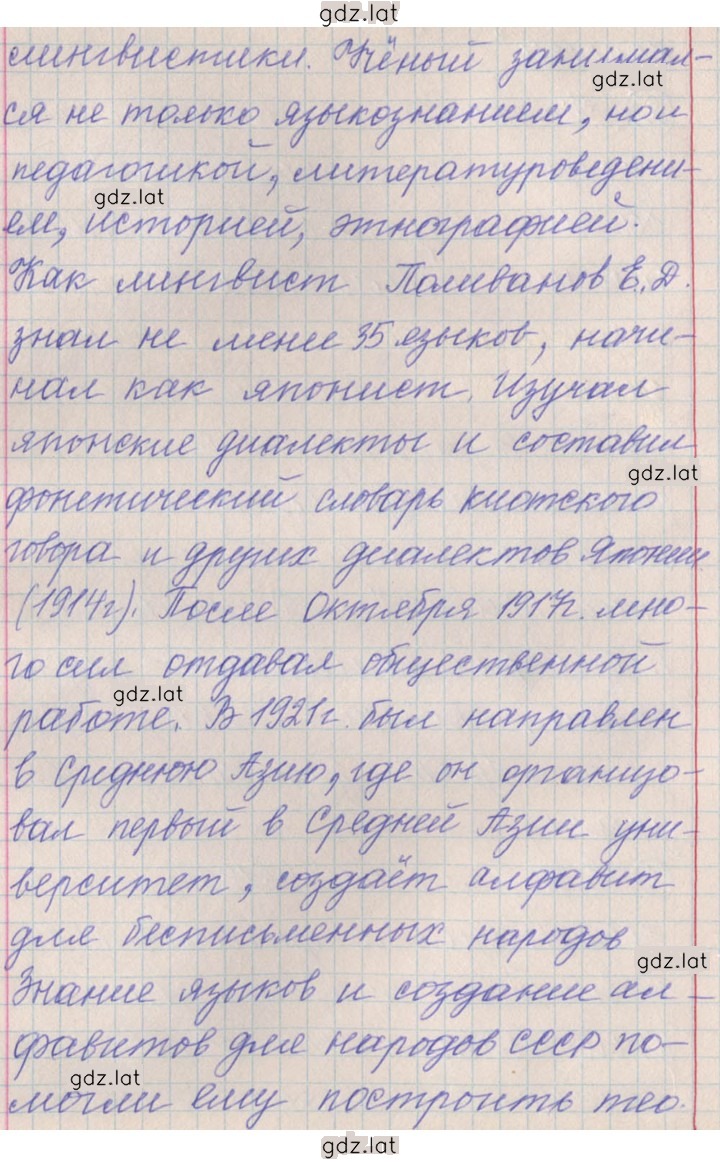 gdz.lat
лингвистики. Учёный занимал-
gdz.lat
ся не только языкознанием, но и
педагогикой, литературоведени-
gdz.lat
ем, историей, этнографией.
Как лингвист Поливанов Е.Д.
знал не менее 35 языков, начи-
нал как японист. Изучал
японские диалекты и составил
gdz.lat
фонетический словарь киотского
говора и других диалектов Японии
(1914г). После Октября 1917г. мно-
го сил отдавал общественной
gdz.lat
работе. В 1921г. был направлен
в Среднюю Азию, где он организо-
вал первый в Средней Азии уни-
верситет, создаёт алфавит
для бесписьменных народов
gdz.lat
Знание языков и создание ал-
фавитов для народов СССР по-
gdz.lat
могли ему построить тео.
gdz.lat